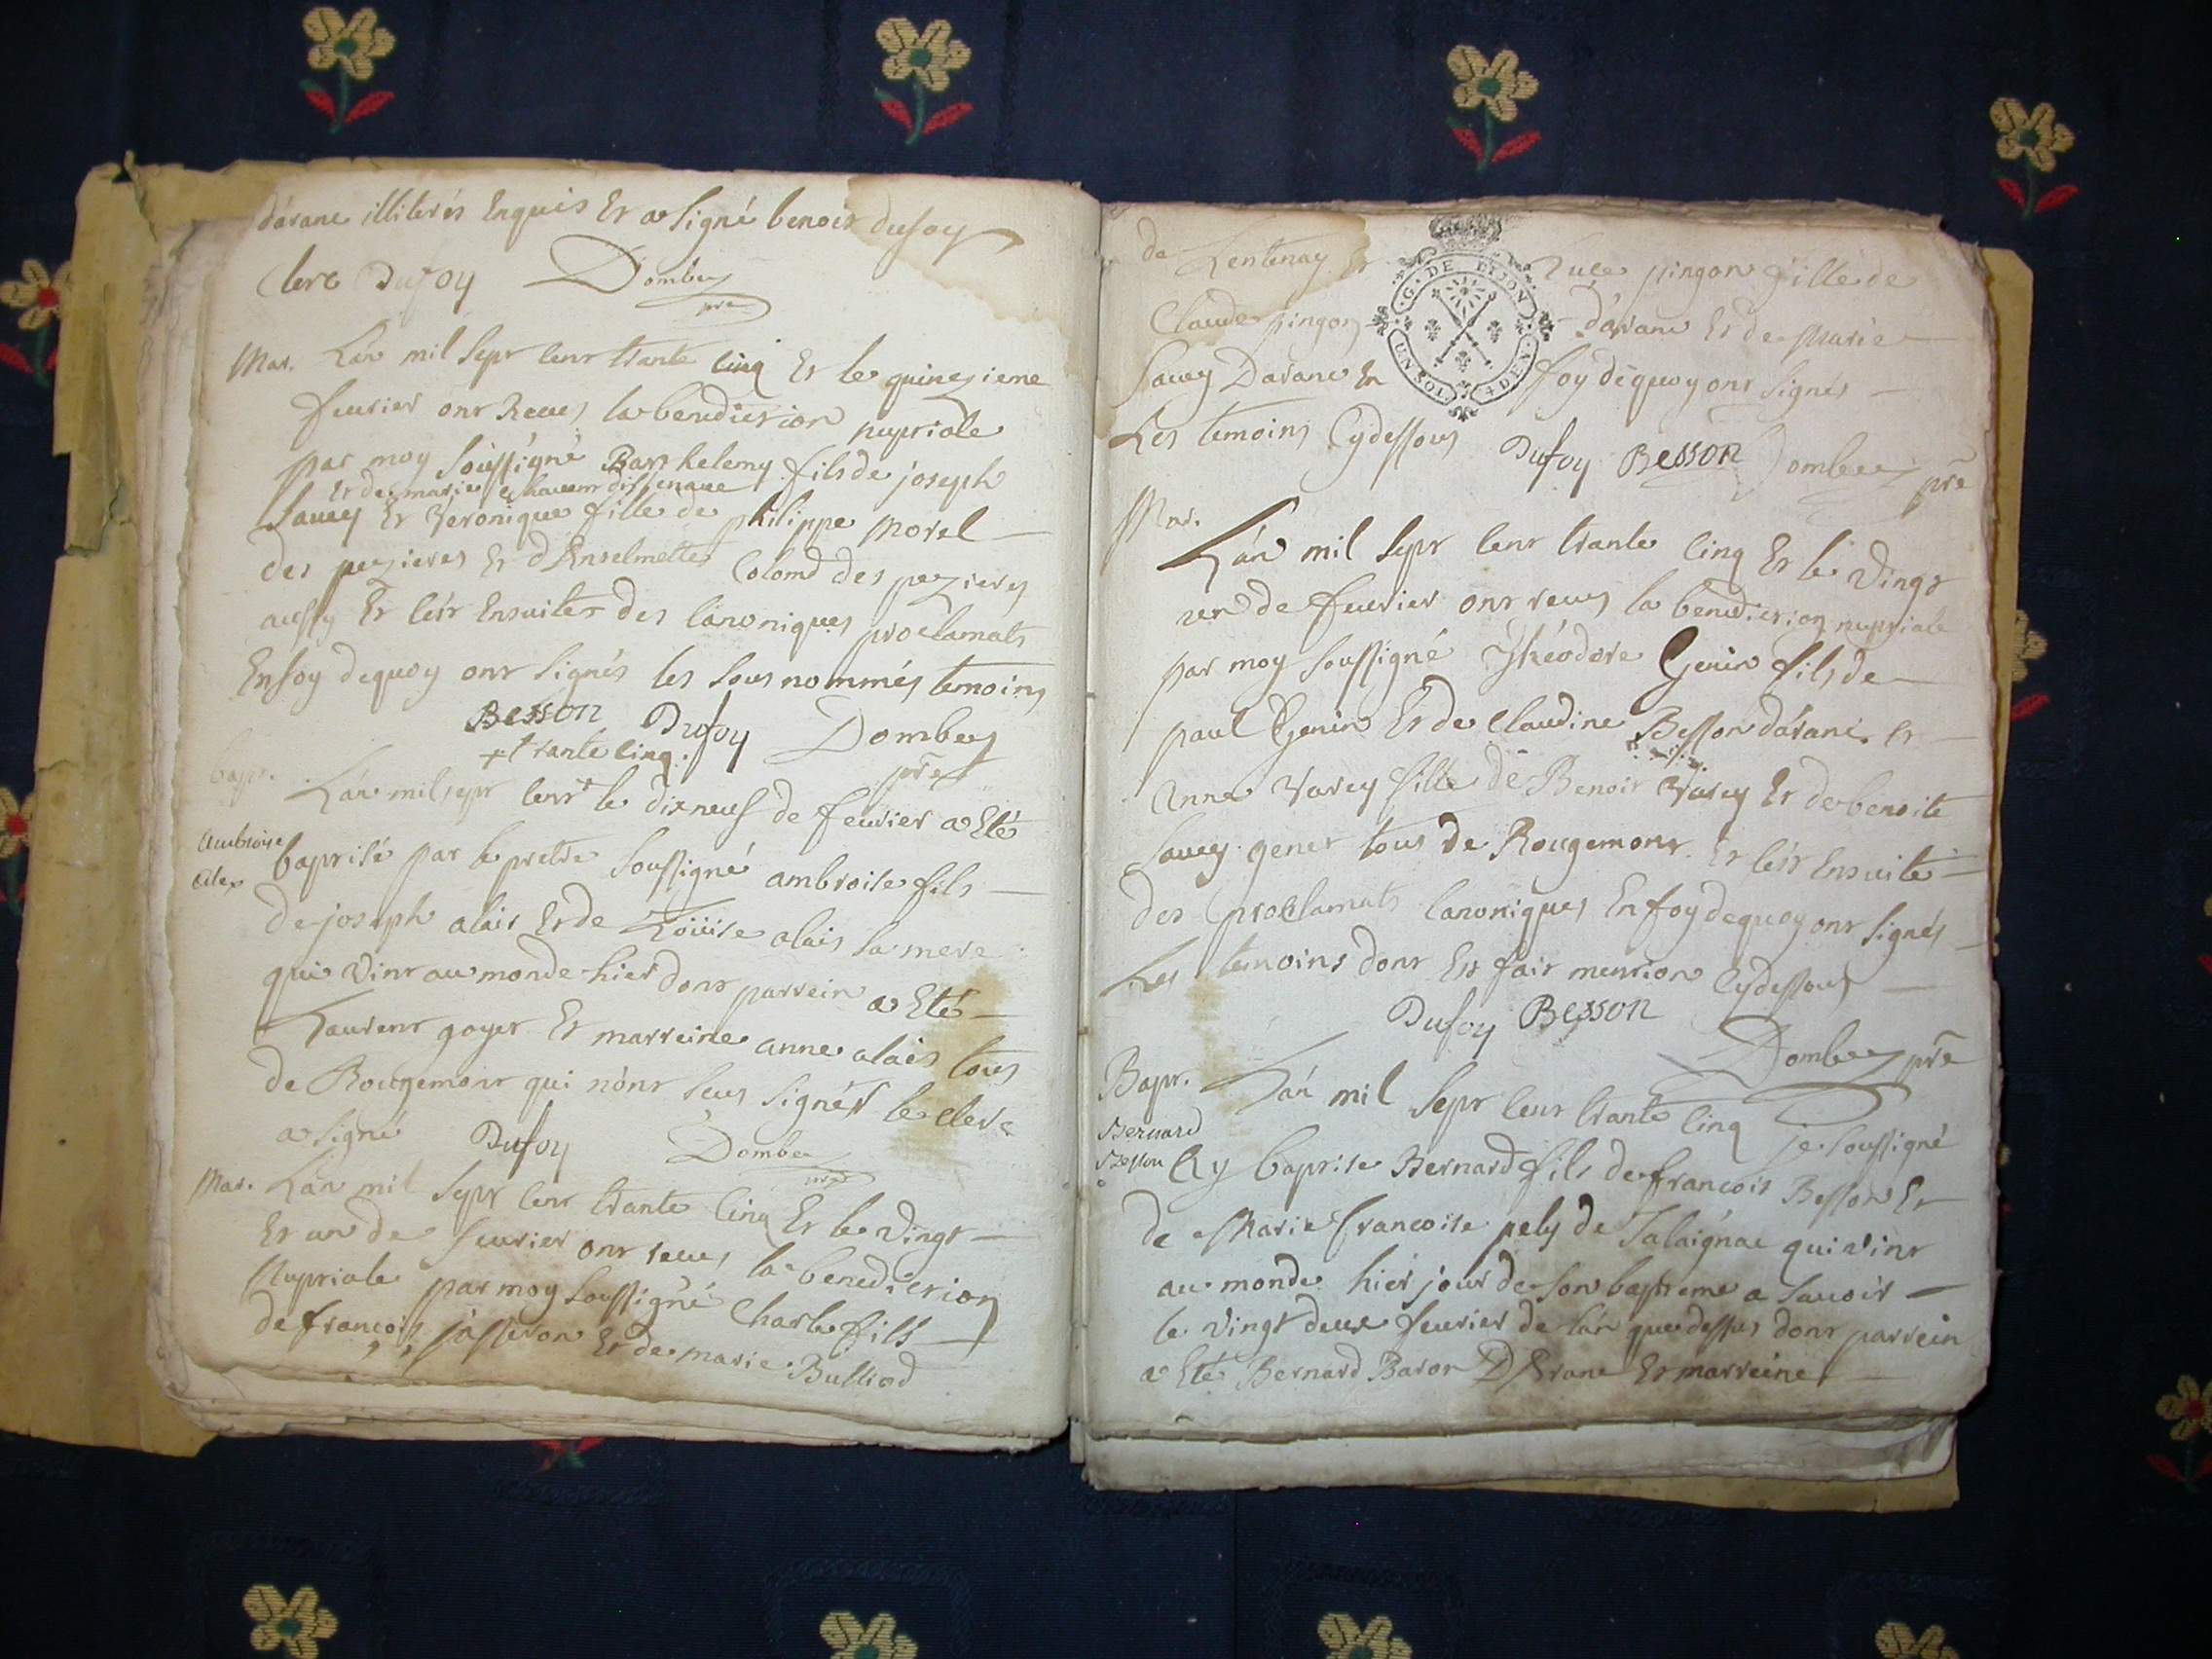 dárane illiterés Enquis Et a Signé benoit dufoy
Clerc Dufoy Dombey
pre
Mar. L'an mil Sept Cent trante cinq Et le quinzieme
feurier ont Receus la benediction nuptiale
par moy soussigné Barthelemy fils de joseph
Et de marie
Sauey Et Veronique fille de philippe Morel
des pezieres Et d'Anselmette Colomd des pezieres
aussy Et le sir Ensuitte des Canoniques proclamats
En foy dequoy ont Signés les Sous nommés temoins
Besson Dufoy Dombey
+ trante cinq. pre
bapt. L'an mil sept Cent + le dix neuf de feurier a Eté
Ambroise baptisé par le pretre Soussigné ambroise fils
Alex de joseph alais Et de Loüise alais sa mere
qui Vint au monde hier dont parrein a Eté
Laurent goyet Et marreine anne alais tous
de Rougemont qui n'ont Seus Signér le clerc
a signé Dufoy Dombey
pre
Mar. L'an mil Sept Cent trante Cinq Et le Vingt
Et un de feurier ont receus la benediction
Nuptiale par moy Soussigné Charle fils
de françois jasseron Et de marie Bulliod
de Lentenay Et Luce pingon fille de
Claude pingon dárane Et de Marie
Sauey Darane En foy dequoy ont Signés
Les temoins Cydessous Dufoy Besson Dombey pre
G. DE DIJON
UN SOL 4 DEN.
Mar.
L'an mil Sept Cent trante Cinq Et le Vingt
un de feurier ont receus la benediction nuptiale
par moy Soussigné Théodore Genin fils de
paul Genin Et de Claudine Besson dárane Et
Anne Varey fille de Benoit Varey Et de benoite
Sauey genet tous de Rougemont Et le sir Ensuite
des proclamats Canoniques En foy dequoy ont Signés
Les temoins dont Est fait mention Cydessous
Dufoy Besson
Dombey pre
Bapt. L'an mil Sept Cent trante Cinq je Soussigné
Bernard
Besson Ay baptise Bernard fils de françois Besson Et
de Marie francoise pely de Jalaignae qui vint
au monde hier jour de son baptreme a Sauoir
le Vingt deux feurier de l'an que dessus dont parrein
a Eté Bernard Baror D'Arane Et marreine